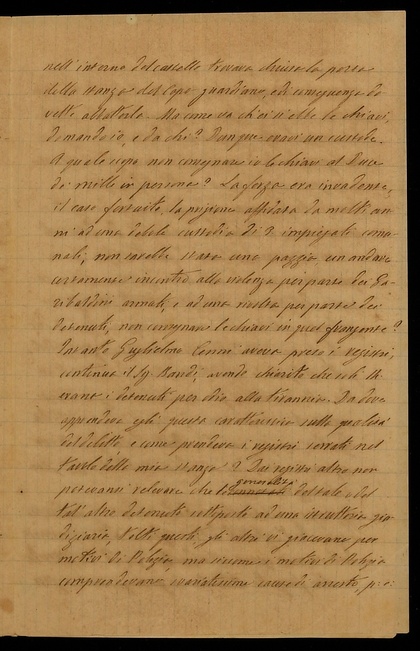 nell'interno del castello trovava chiusa la porta
della stanza del Capo guardiano, ed in conseguenza do
vette abbatterla. Ma come va chi ebbe le chiavi,
domando io, e da chi? Dunque eravi un custode.
A quale scopo non consegnare io le chiavi al Duce
di mille in persona? La forza era invadente,
il caso fortuito, la prigione affidata da molti an
ni ad una debole custodia di 3 impiegati comu
nali, non sarebbe stata una pazzia un andare
certamente incontro alla violenza per parte dei Ga
ribaldini armati, e ad una rivolta per parte dei
detenuti, non consegnare le chiavi in quel frangente?
Intanto Guglielmo Cenni aveva preso i registri,
continua il Sig. Nardi, avendo chiarito che si li
berano i detenuti per dio alla tirannia. Da dove
apprendeva egli questa caratteristica sulla qualità
del delitto, e come prendeva i registri serrati nel
tavolo della mia stanza? Dai registri altro non
potevansi rilevare che le generalità del tale, e del
tal'altro detenuti sottoposti ad una istruttoria giu
diziaria, tolti questi, gli altri vi giacevano per
motivi di Polizia, ma siccome i motivi di Polizia
comprendevano svariatissime cause di arresto, p. e: